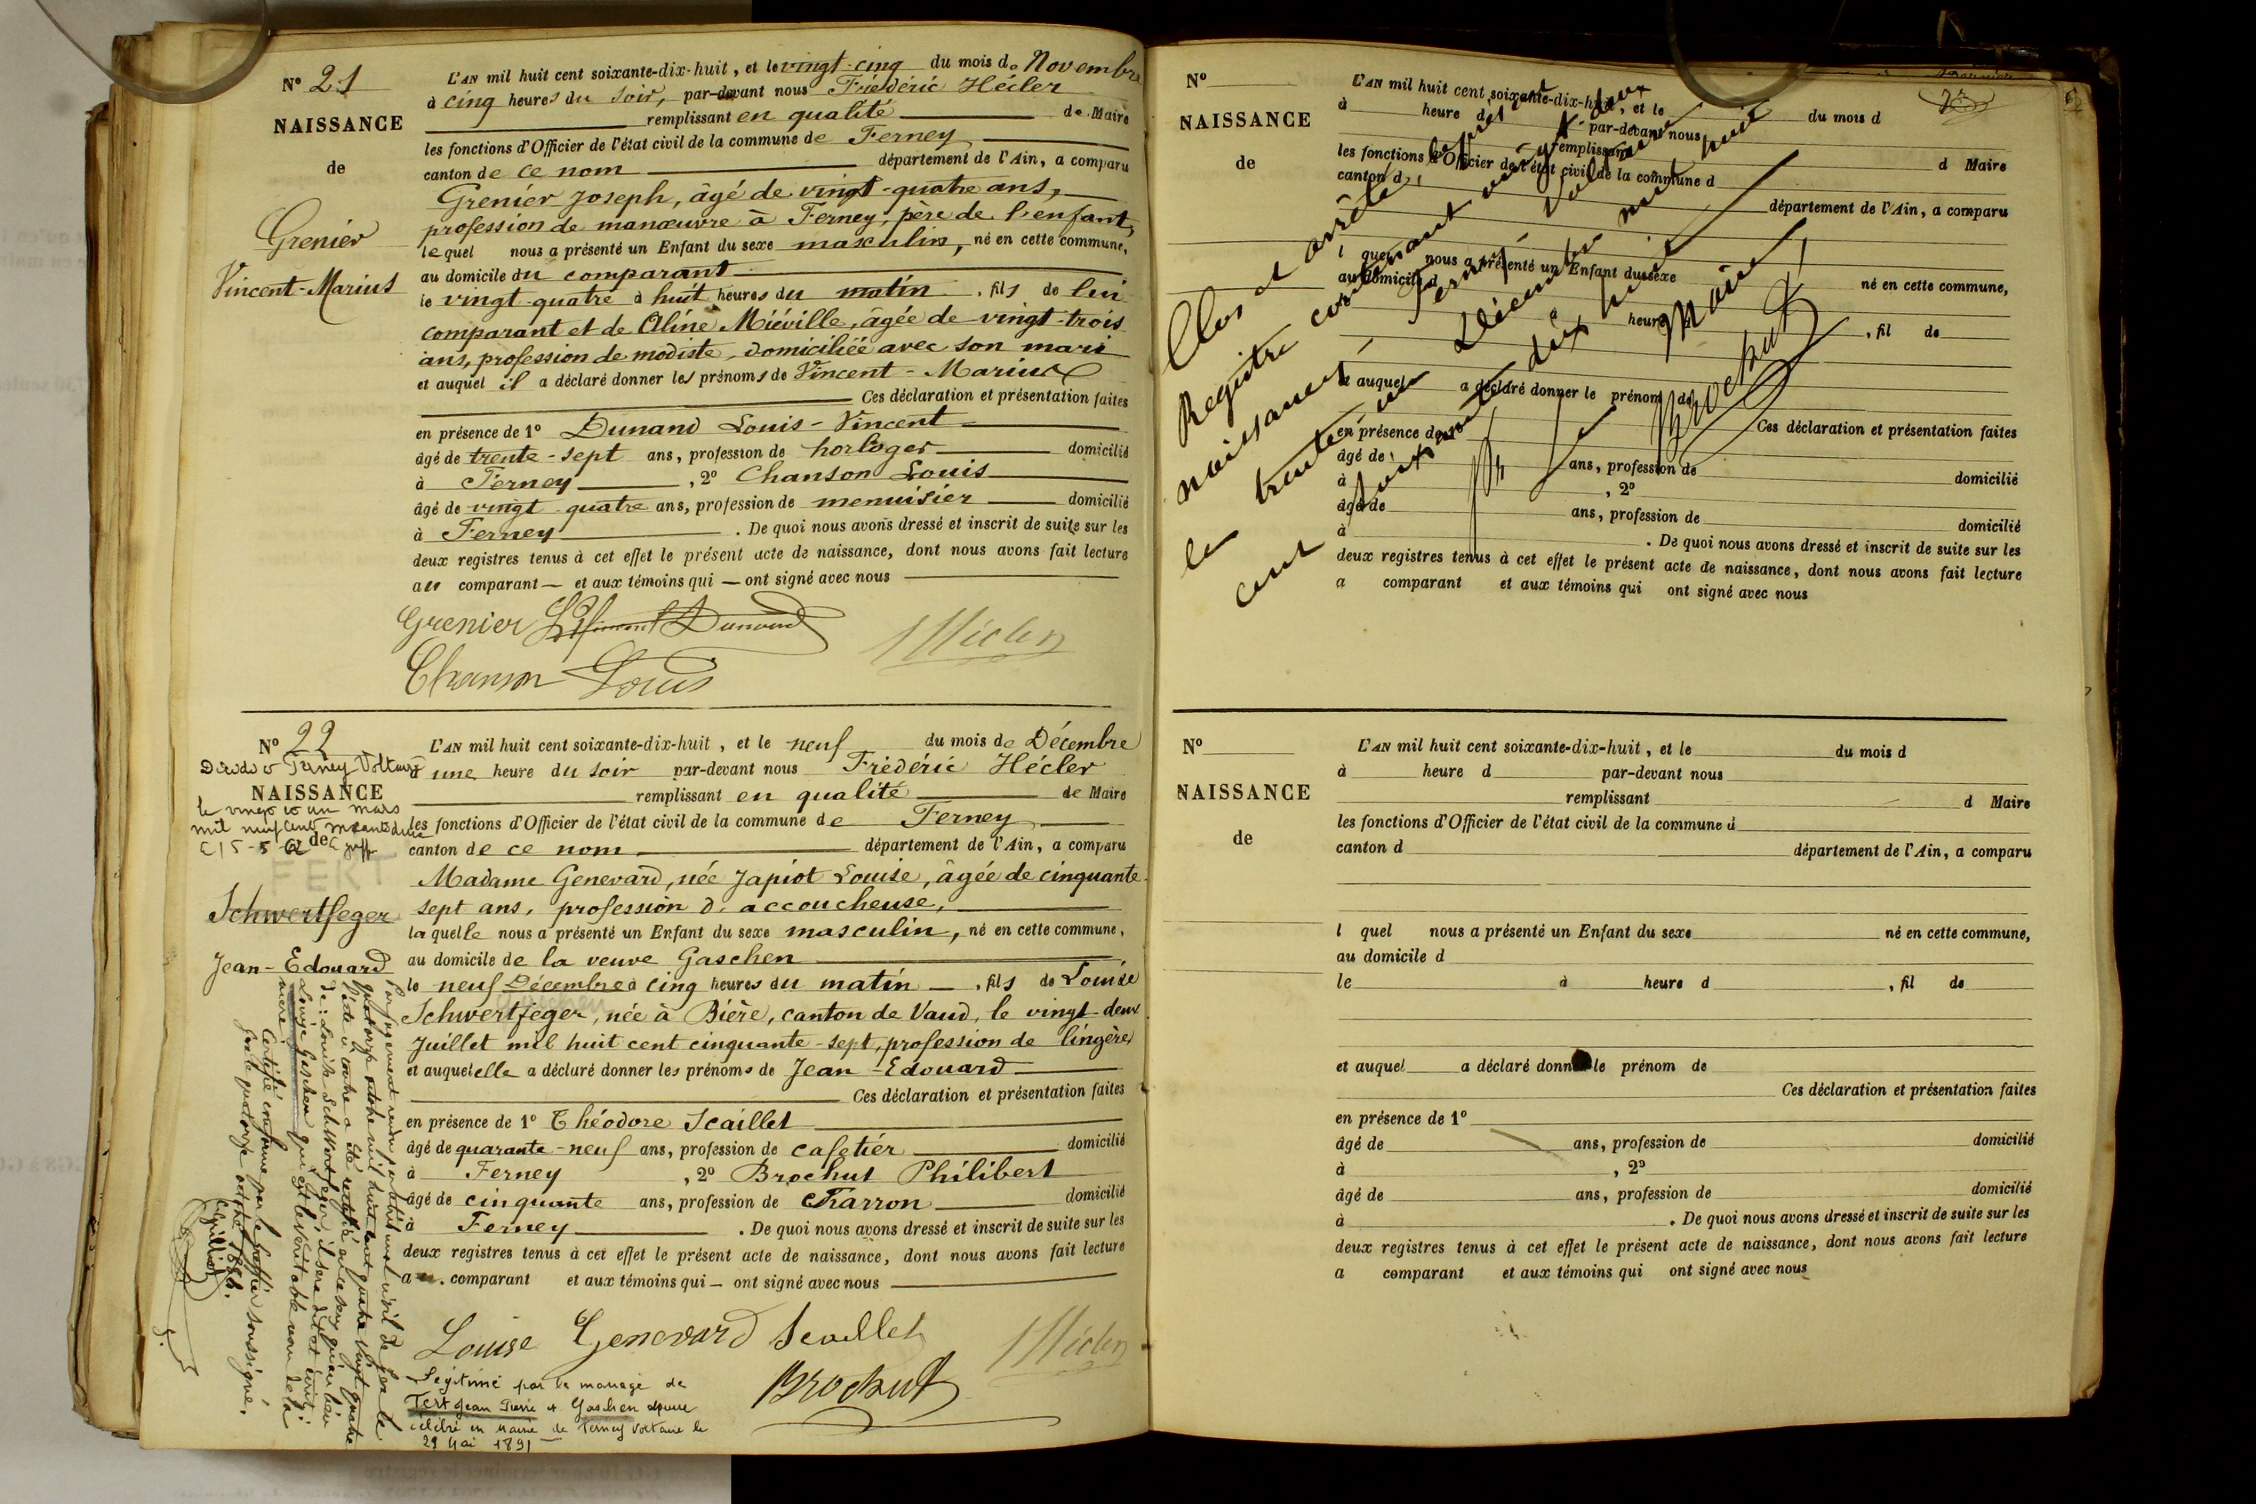 N° 21
NAISSANCE
de
Grenier
Vincent-Marius
L'AN mil huit cent soixante-dix-huit, et le vingt-cinq du mois de Novembre
à cinq heures du soir, par-devant nous Frédéric Hécler
remplissant en qualité de Maire
les fonctions d'Officier de l'état civil de la commune de Ferney
canton de ce nom département de l'Ain, a comparu
Grenier Joseph, âgé de vingt-quatre ans,
profession de manœuvre à Ferney, père de l'enfant,
lequel nous a présenté un Enfant du sexe masculin, né en cette commune,
au domicile du comparant
le vingt-quatre à huit heures du matin, fils de lui
comparant et de Aline Miéville, âgée de vingt-trois
ans, profession de modiste, domiciliée avec son mari
et auquel il a déclaré donner les prénoms de Vincent-Marius
Ces déclaration et présentation faites
en présence de 1° Dunand Louis-Vincent
âgé de trente-sept ans, profession de horloger domicilié
à Ferney, 2° Chanson Louis
âgé de vingt-quatre ans, profession de menuisier domicilié
à Ferney. De quoi nous avons dressé et inscrit de suite sur les
deux registres tenus à cet effet le présent acte de naissance, dont nous avons fait lecture
au comparant — et aux témoins qui — ont signé avec nous
Grenier Dunand Hécler
Chanson Louis
N° 22
Décédé à Ferney Voltaire
NAISSANCE
le vingt et un mars
mil neuf cent
de
FERT
Schwertfeger
Jean-Edouard
L'AN mil huit cent soixante-dix-huit, et le neuf du mois de Décembre
à une heure du soir par-devant nous Frédéric Hécler
remplissant en qualité de Maire
les fonctions d'Officier de l'état civil de la commune de Ferney
canton de ce nom département de l'Ain, a comparu
Madame Genevard, née Japiot Louise, âgée de cinquante-
sept ans, profession d'accoucheuse,
laquelle nous a présenté un Enfant du sexe masculin, né en cette commune,
au domicile de la veuve Gaschen
le neuf Décembre à cinq heures du matin —, fils de Louise
Gaschen
Schwertfeger, née à Bière, canton de Vaud, le vingt-deux
Juillet mil huit cent cinquante-sept, profession de lingère
et auquel elle a déclaré donner les prénoms de Jean-Edouard
Ces déclaration et présentation faites
en présence de 1° Théodore Scaillet
âgé de quarante-neuf ans, profession de cafetier domicilié
à Ferney, 2° Brochut Philibert
âgé de cinquante ans, profession de Charron domicilié
à Ferney. De quoi nous avons dressé et inscrit de suite sur les
deux registres tenus à cet effet le présent acte de naissance, dont nous avons fait lecture
a comparant et aux témoins qui — ont signé avec nous
Louise Genevard Scaillet Hécler
Brochut
Légitimé par le mariage de
Fert Jean Pierre et Gaschen Louise
célébré en mairie de Ferney Voltaire le
29 Mai 1891
Par jugement rendu par le tribunal civil de Gex le
quatorze octobre mil huit cent quatre vingt quatre
l'acte ci contre a été rectifié en ce sens qu'au lieu
de: Louise Schwertfeger, il sera dit et écrit:
Louise Gaschen qui est le véritable nom de la
mère
Certifié conforme par le greffier soussigné.
Gex le quatorze octobre 1884.
N°
NAISSANCE
de
L'AN mil huit cent soixante-dix-huit, et le du mois d
à heure d par-devant nous
remplissant d Maire
les fonctions d'Officier de l'état civil de la commune d
canton d département de l'Ain, a comparu
l quel nous a présenté un Enfant du sexe né en cette commune,
au domicile d
à heure , fil de
et auquel a déclaré donner le prénom de
Ces déclaration et présentation faites
en présence de 1°
âgé de ans, profession de domicilié
à , 2°
âgé de ans, profession de domicilié
à . De quoi nous avons dressé et inscrit de suite sur les
deux registres tenus à cet effet le présent acte de naissance, dont nous avons fait lecture
a comparant et aux témoins qui ont signé avec nous
Clos et arrêté le présent
Registre contenant vingt-deux
naissances, Ferney-Voltaire
le trente un Décembre mil huit
cent soixante dix huit
Le Maire
Brochut
N°
NAISSANCE
de
L'AN mil huit cent soixante-dix-huit, et le du mois d
à heure d par-devant nous
remplissant d Maire
les fonctions d'Officier de l'état civil de la commune d
canton d département de l'Ain, a comparu
l quel nous a présenté un Enfant du sexe né en cette commune,
au domicile d
le à heure d , fil de
et auquel a déclaré donner le prénom de
Ces déclaration et présentation faites
en présence de 1°
âgé de ans, profession de domicilié
à , 2°
âgé de ans, profession de domicilié
à . De quoi nous avons dressé et inscrit de suite sur les
deux registres tenus à cet effet le présent acte de naissance, dont nous avons fait lecture
a comparant et aux témoins qui ont signé avec nous